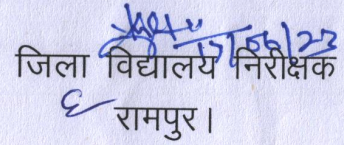 17/06/23
जिला विद्यालय निरीक्षक
रामपुर।